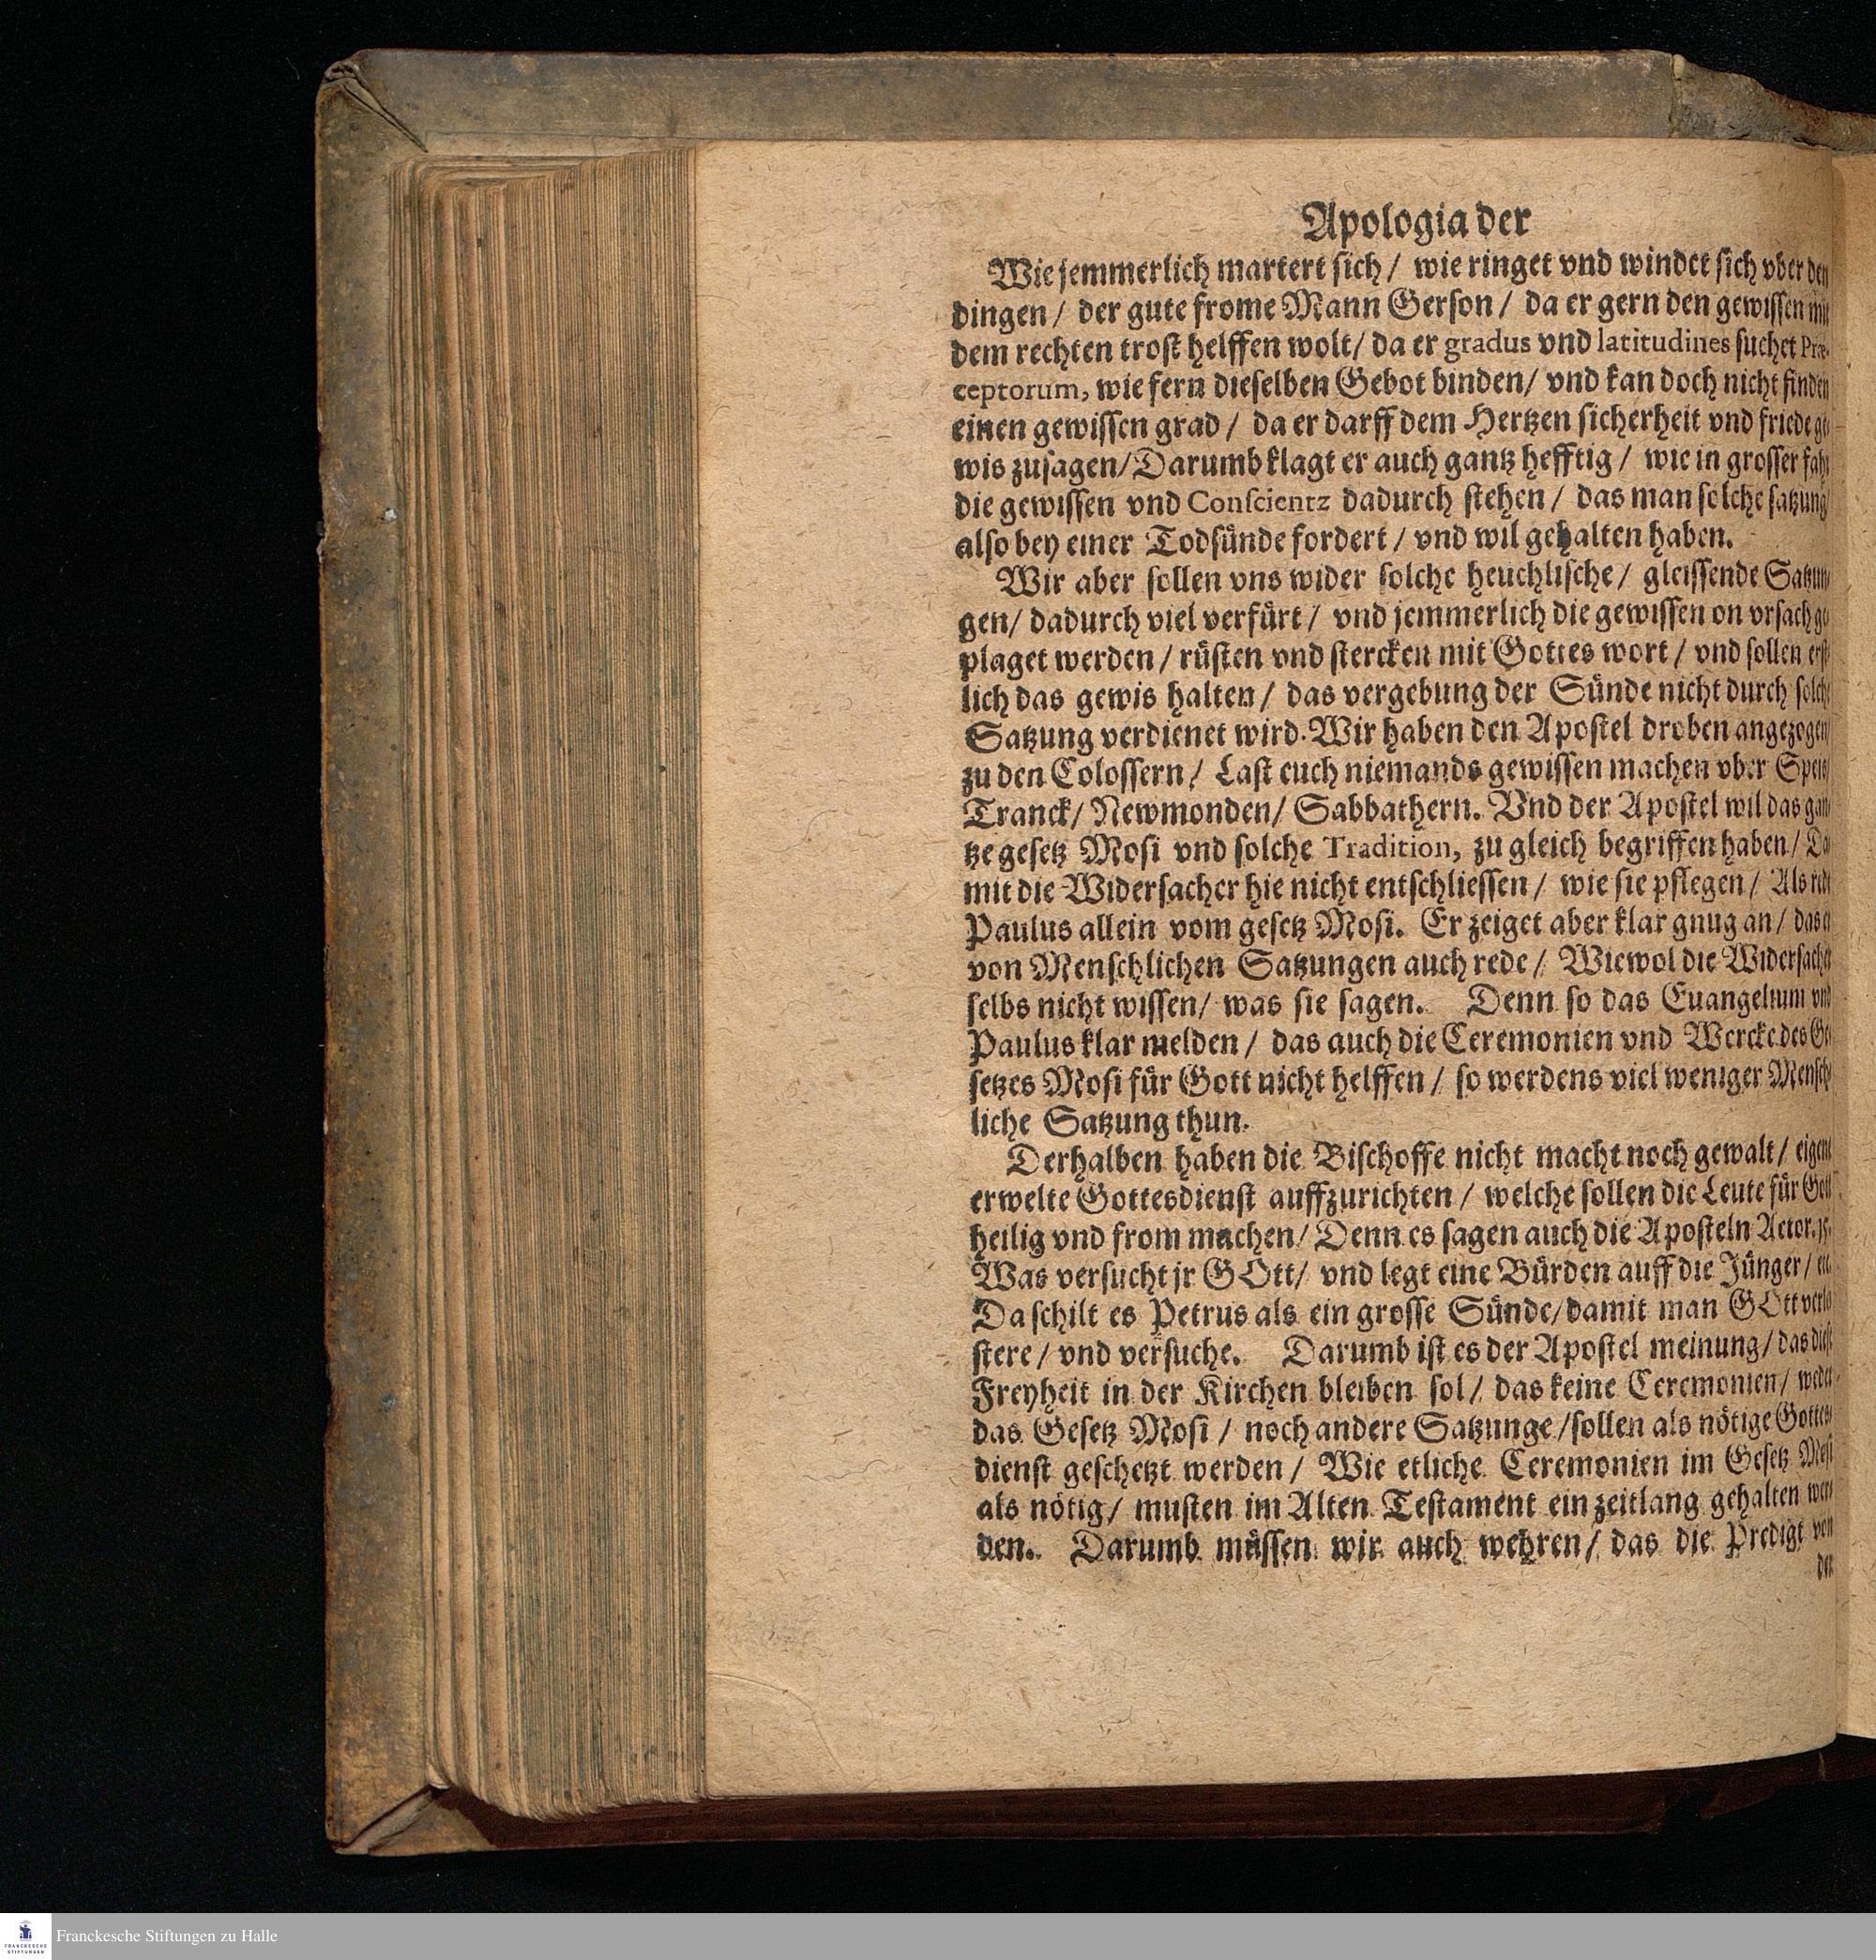 Apologia der
Wie jemmerlich martert sich / wie ringet vnd windet sich vber den
dingen / der gute frome Mann Gerson / da er gern den gewissen mit
dem rechten trost helffen wolt / da er gradus vnd latitudines suchet Præ-
ceptorum, wie fern dieselben Gebot binden / vnd kan doch nicht finden
einen gewissen grad / da er darff dem Hertzen sicherheit vnd friede ge
wis zusagen / Darumb klagt er auch gantz hefftig / wie in grosser fahr
die gewissen vnd Conscientz dadurch stehen / das man solche satzung
also bey einer Todsünde fordert / vnd wil gehalten haben.
Wir aber sollen vns wider solche heuchlische / gleissende Satzun
gen / dadurch viel verfürt / vnd jemmerlich die gewissen on vrsach ge
plaget werden / rüsten vnd stercken mit Gottes wort / vnd sollen erst
lich das gewis halten / das vergebung der Sünde nicht durch solche
Satzung verdienet wird. Wir haben den Apostel droben angezogen
zu den Colossern / Last euch niemands gewissen machen vber Speis
Tranck / Newmonden / Sabbathern. Vnd der Apostel wil das gan
tze gesetz Mosi vnd solche Tradition, zu gleich begriffen haben / Da
mit die Widersacher hie nicht entschliessen / wie sie pflegen / Als rede
Paulus allein vom gesetz Mosi. Er zeiget aber klar gnug an / das er
von Menschlichen Satzungen auch rede / Wiewol die Widersacher
selbs nicht wissen / was sie sagen. Denn so das Euangelium vnd
Paulus klar melden / das auch die Ceremonien vnd Wercke des Ge
setzes Mosi für Gott nicht helffen / so werdens viel weniger Mensch
liche Satzung thun.
Derhalben haben die Bischoffe nicht macht noch gewalt / eigene
erwelte Gottesdienst auffzurichten / welche sollen die Leute für Gott
heilig vnd from machen / Denn es sagen auch die Aposteln Actor.
Was versucht jr GOtt / vnd legt eine Bürden auff die Jünger / etc.
Da schilt es Petrus als ein grosse Sünde / damit man GOtt verle
stere / vnd versuche. Darumb ist es der Apostel meinung / das diese
Freyheit in der Kirchen bleiben sol / das keine Ceremonien / weder
das Gesetz Mosi / noch andere Satzunge / sollen als nötige Gottes
dienst geschetzt werden / Wie etliche Ceremonien im Gesetz Mosi
als nötig / musten im Alten Testament ein zeitlang gehalten wer
den. Darumb müssen wir auch wehren / das die Predigt von
der
Franckesche Stiftungen zu Halle
FRANCKESCHE
STIFTUNGEN